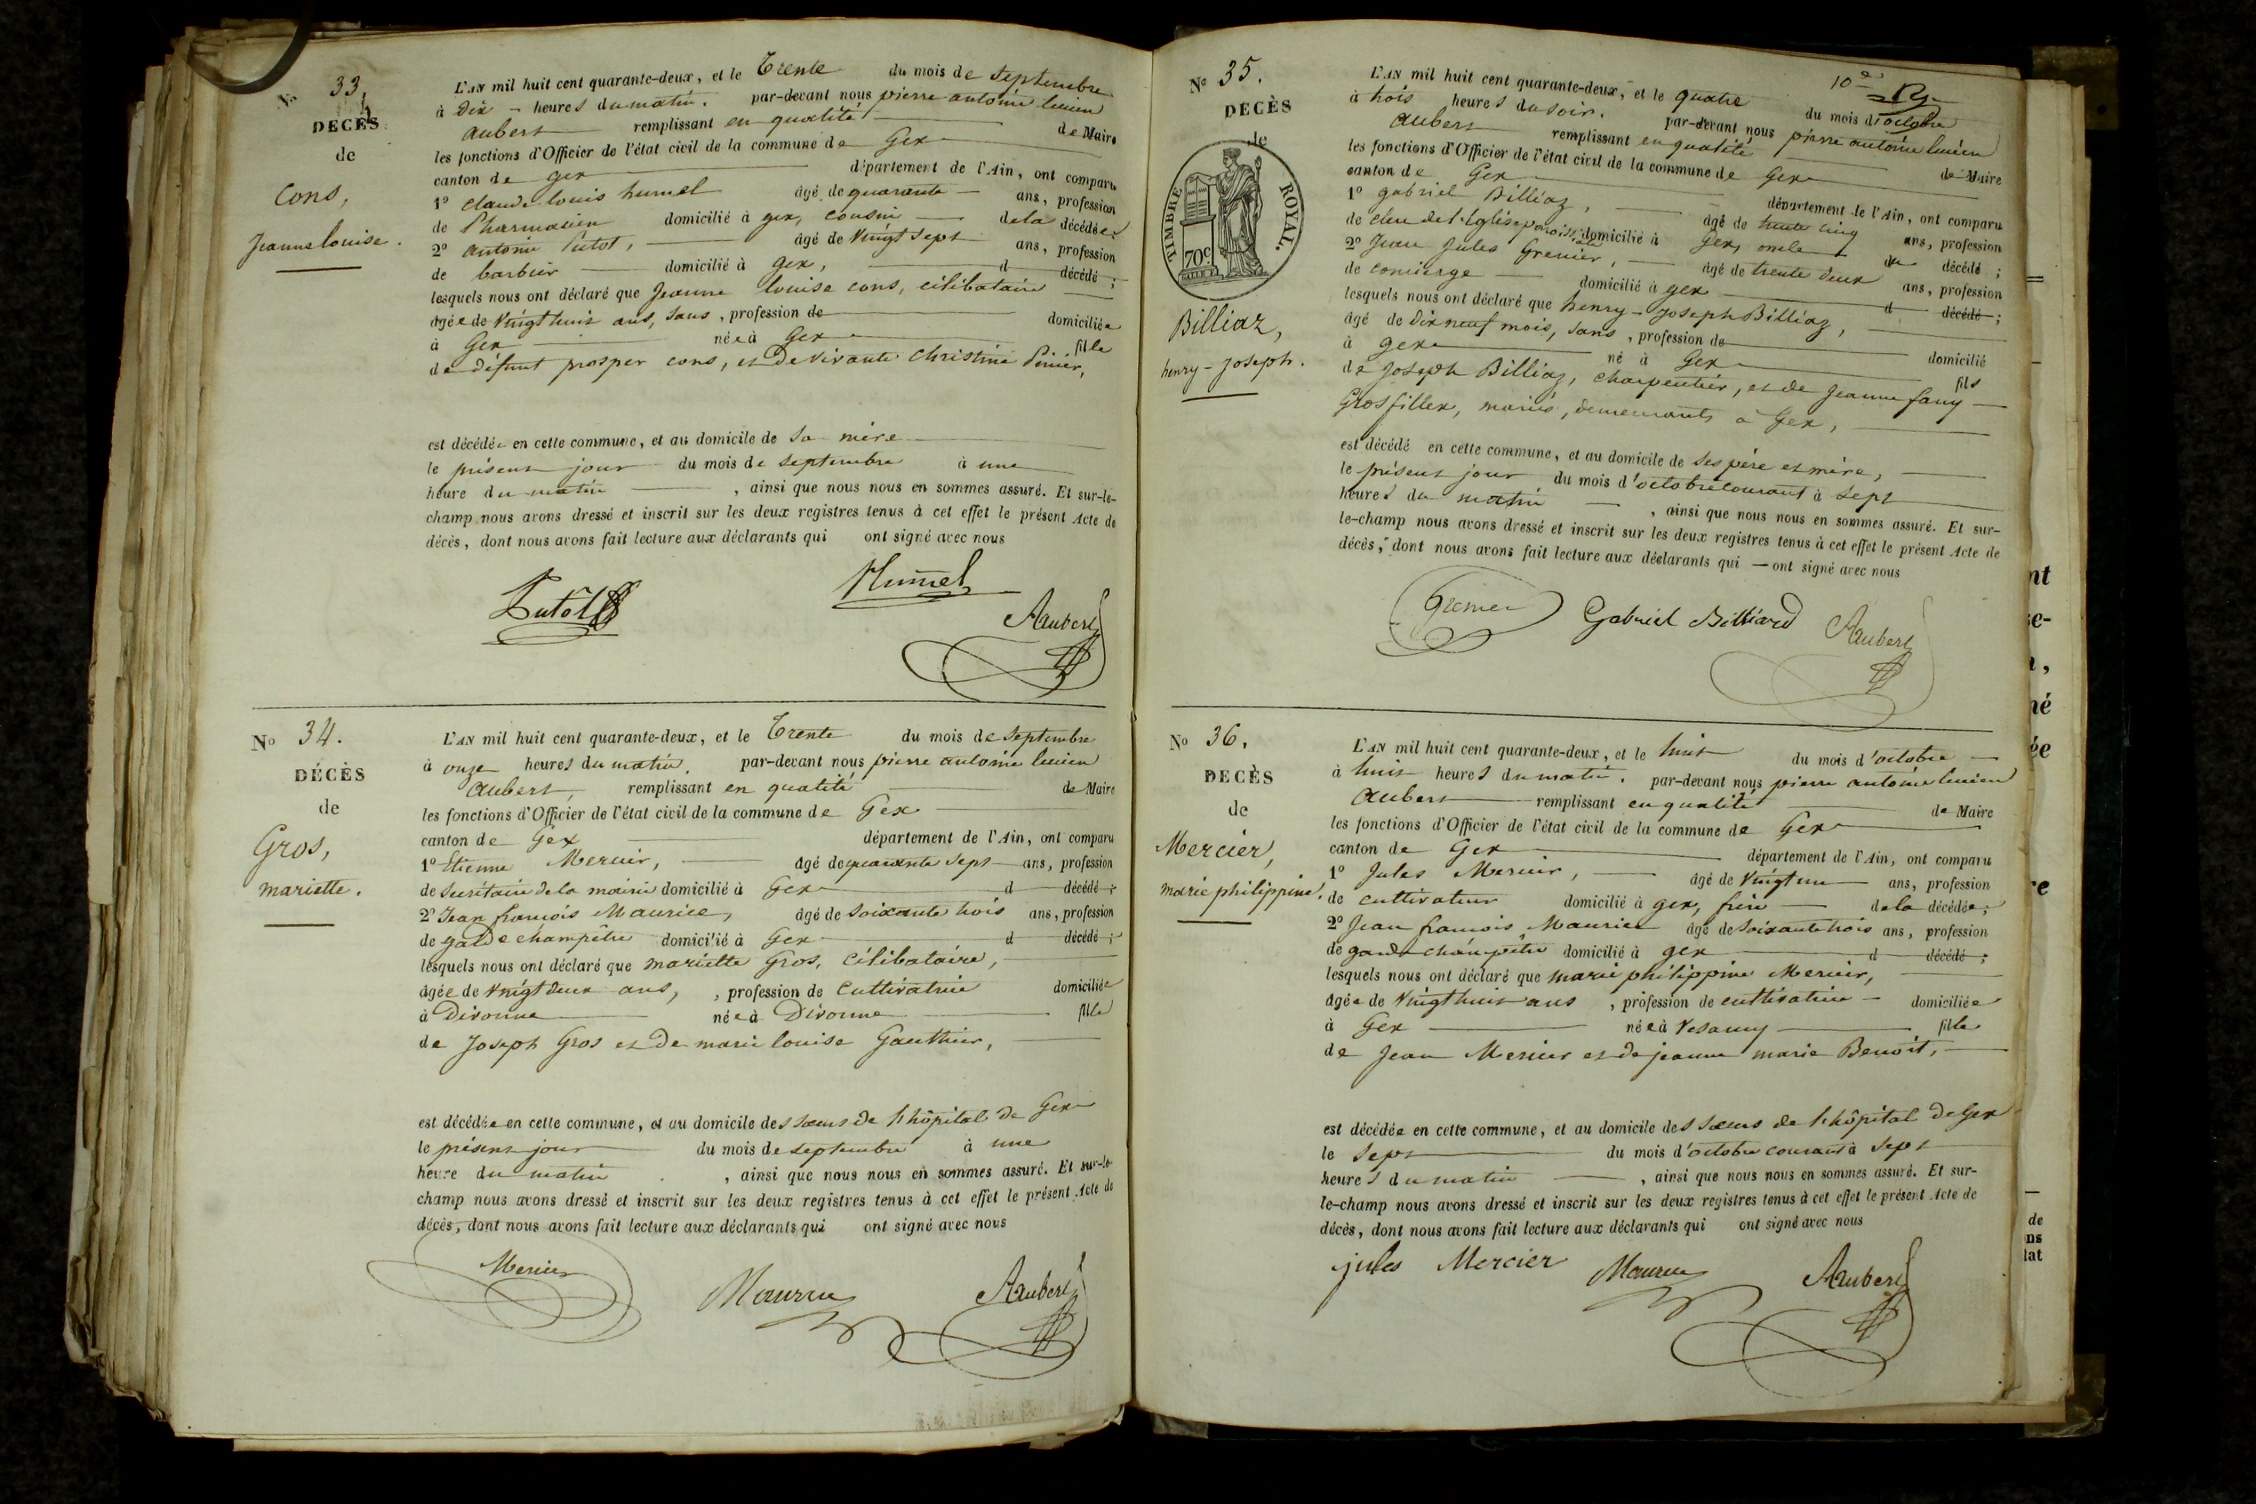 No 33.
DECÈS
de
Cons,
Jeanne Louise.
L'AN mil huit cent quarante-deux, et le Trente du mois de septembre
à dix heures du matin. par-devant nous pierre antoine lucien
aubert remplissant en qualité de Maire
les fonctions d'Officier de l'état civil de la commune de Gex
canton de gex département de l'Ain, ont comparu
1º claude louis humel âgé de quarante ans, profession
de Pharmacien domicilié à gex, cousin de la décédée;
2º antoine Putot, âgé de vingt sept ans, profession
de barbier domicilié à gex, d décédé;
lesquels nous ont déclaré que Jeanne louise cons, célibataire
âgée de vingt huit ans, sans, profession de domiciliée
à Gex née à Gex fille
de défunt prosper cons, et de vivante christine Perrier,
est décédée en cette commune, et au domicile de sa mère
le présent jour du mois de septembre à une
heure du matin, ainsi que nous nous en sommes assuré. Et sur-le-
champ nous avons dressé et inscrit sur les deux registres tenus à cet effet le présent Acte de
décès, dont nous avons fait lecture aux déclarants qui ont signé avec nous
Putot Humel
Aaubert
No 34.
DÉCÈS
de
Gros,
mariette.
L'AN mil huit cent quarante-deux, et le Trente du mois de septembre
à onze heures du matin. par-devant nous pierre antoine lucien
aubert, remplissant en qualité de Maire
les fonctions d'Officier de l'état civil de la commune de Gex
canton de Gex département de l'Ain, ont comparu
1º Etienne Mercier, âgé de quarante sept ans, profession
de secrétaire de la mairie domicilié à Gex d décédé;
2º Jean françois Maurice, âgé de soixante trois ans, profession
de garde champêtre domicilié à Gex d décédé;
lesquels nous ont déclaré que mariette Gros, célibataire,
âgée de vingt deux ans, , profession de cultivatrice domiciliée
à Divonne née à Divonne fille
de Joseph Gros et de marie louise Gauthier,
est décédée en cette commune, et au domicile des sœurs de l'hôpital de Gex
le présent jour du mois de septembre à une
heure du matin, ainsi que nous nous en sommes assuré. Et sur-le-
champ nous avons dressé et inscrit sur les deux registres tenus à cet effet le présent Acte de
décès, dont nous avons fait lecture aux déclarants qui ont signé avec nous
Mercier Maurice Aaubert
No 35.
DECÈS
de
TIMBRE ROYAL.
70c.
Billiaz,
henry-Joseph.
10e
L'AN mil huit cent quarante-deux, et le quatre du mois d'octobre
à trois heures du soir. par-devant nous pierre antoine lucien
aubert remplissant en qualité de Maire
les fonctions d'Officier de l'état civil de la commune de Gex
canton de Gex département de l'Ain, ont comparu
1º gabriel Billiaz, âgé de trente cinq ans, profession
de clerc de l'Eglise paroissiale domicilié à Gex, oncle du décédé;
2º Jean Jules Grenier, âgé de trente deux ans, profession
de concierge domicilié à gex d décédé;
lesquels nous ont déclaré que henry-Joseph Billiaz,
âgé de dix neuf mois, sans, profession de domicilié
à gex né à Gex fils
de Joseph Billiaz, charpentier, et de Jeanne fany
Grosfillex, mariés, demeurants à Gex,
est décédé en cette commune, et au domicile de ses père et mère,
le présent jour du mois d'octobre courant à sept
heures du matin, ainsi que nous nous en sommes assuré. Et sur-
le-champ nous avons dressé et inscrit sur les deux registres tenus à cet effet le présent Acte de
décès, dont nous avons fait lecture aux déclarants qui ont signé avec nous
Grenier Gabriel Billiard Aaubert
No 36.
DECÈS
de
Mercier,
marie philippine.
L'AN mil huit cent quarante-deux, et le huit du mois d'octobre
à huit heures du matin. par-devant nous pierre antoine lucien
aubert remplissant en qualité de Maire
les fonctions d'Officier de l'état civil de la commune de Gex
canton de Gex département de l'Ain, ont comparu
1º Jules Mercier, âgé de vingt un ans, profession
de cultivateur domicilié à gex, frère de la décédée;
2º Jean francois Maurice âgé de soixante trois ans, profession
de garde champêtre domicilié à gex d décédé;
lesquels nous ont déclaré que marie philippine Mercier,
âgée de vingt huit ans, profession de cultivatrice domiciliée
à Gex née à Vesancy fille
de Jean Mercier et de jeanne marie Benoit,
est décédée en cette commune, et au domicile des sœurs de l'hôpital de Gex
le sept du mois d'octobre courant à sept
heures du matin, ainsi que nous nous en sommes assuré. Et sur-
le-champ nous avons dressé et inscrit sur les deux registres tenus à cet effet le présent Acte de
décès, dont nous avons fait lecture aux déclarants qui ont signé avec nous
jules Mercier Maurice Aaubert